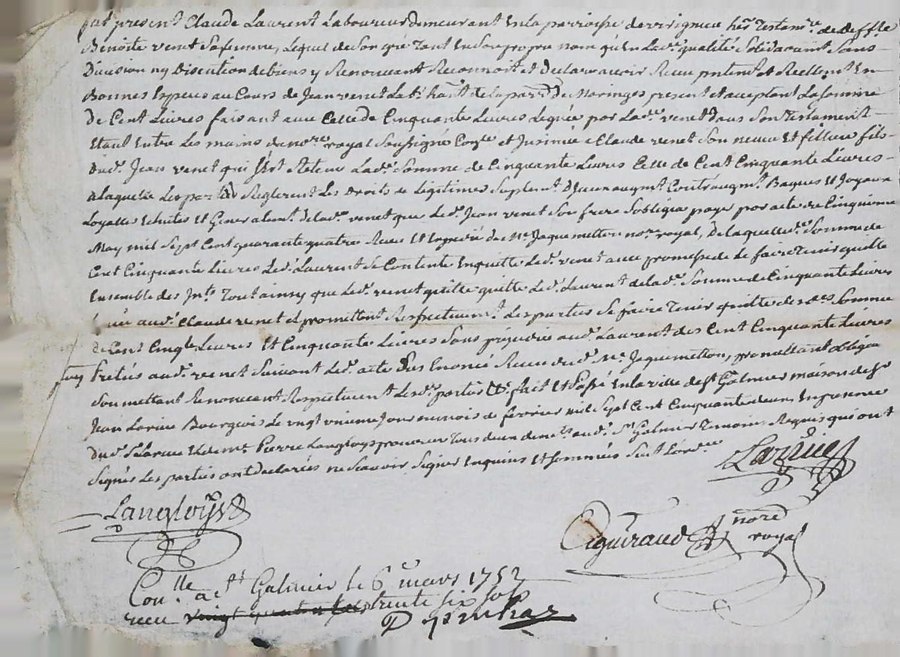 fut present Claude Laurent Laboureur demeurant En la parroisse de hér. Testamre. de deffte
Benoiste venet sa femme, Lequel de son gré tant En son propre nom qu'En lad. qualité solidairemt sans
Division ny Discution de biens y Renonceant Reconnoit et Declare avoir Receu et Reellemt En
Bonnes Especes au Cours de Jean venet Le habt. de la parre. de Maringes present et acceptant La somme
De Cent Livres faisant avec Celle de Cinquante Livres Leguée par Lad. venet Dans son Testament
Etant Entre Les mains du nore. royal soussigné et Jnsinué a Claude venet son neveu et filleu fils
Dud. Jean venet qui Lad. somme de Cinquante Livres Celle de Cent Cinquante Livres
a laquelle Les parties Reglerent Les Droits de Legitimes Suplemt. D'jceux augmt. Contraugmt. Bagues et Joyaux
Loyalles Echutes et Generalemt. de lad. venet que Led. Jean venet son frere s'obligea payer par acte du Cinquieme
May mil Sept Cent quarante quatre Receu et Expedié du Me. Jaquemetton nore. royal, De laquelle de. Somme de
Cent Cinquante Livres Led. Laurent se Contente En quitte Led. venet avec promesse de Le faire Tenir quitte
Ensemble des Jnts. Tout ainsy que Led. venet quitte Led. Laurent de lad. Somme de Cinquante Livres
aud. Claude venet Et promettent Respectivemt. Les parties se faire Tenir quitte des des. Sommes
de Cent Cinqte. Livres Et Cinquante Livres Sans préjudice aud. Laurent des Cent Cinquante Livres
Traités aud. venet Suivant Led. acte Enoncé Receu du d. Me. Jaquemetton, promettant obligeant
Soumettant Renonceant Respectivemt. Lesd. parties Ct. fait Et Passé En la ville de St. Galmier maison de Sr.
Jean Larüe Bourgeois Le vingt unieme Jour du mois de fevrier mil Sept Cent Cinquante deux En presence
Dud. Sr. Larue Et de Me. Pierre Langloys procureur Tous deux aud. St. Galmier Temoins Requis qui ont
Signés Les parties ont Declarées ne Scavoir Signer Enquis Et Sommées Suivt. L'ordce.
Larüe
Langloys
nore
royal
Con.lle a St. Galmier le 6 mars 1752
receu trente six sols